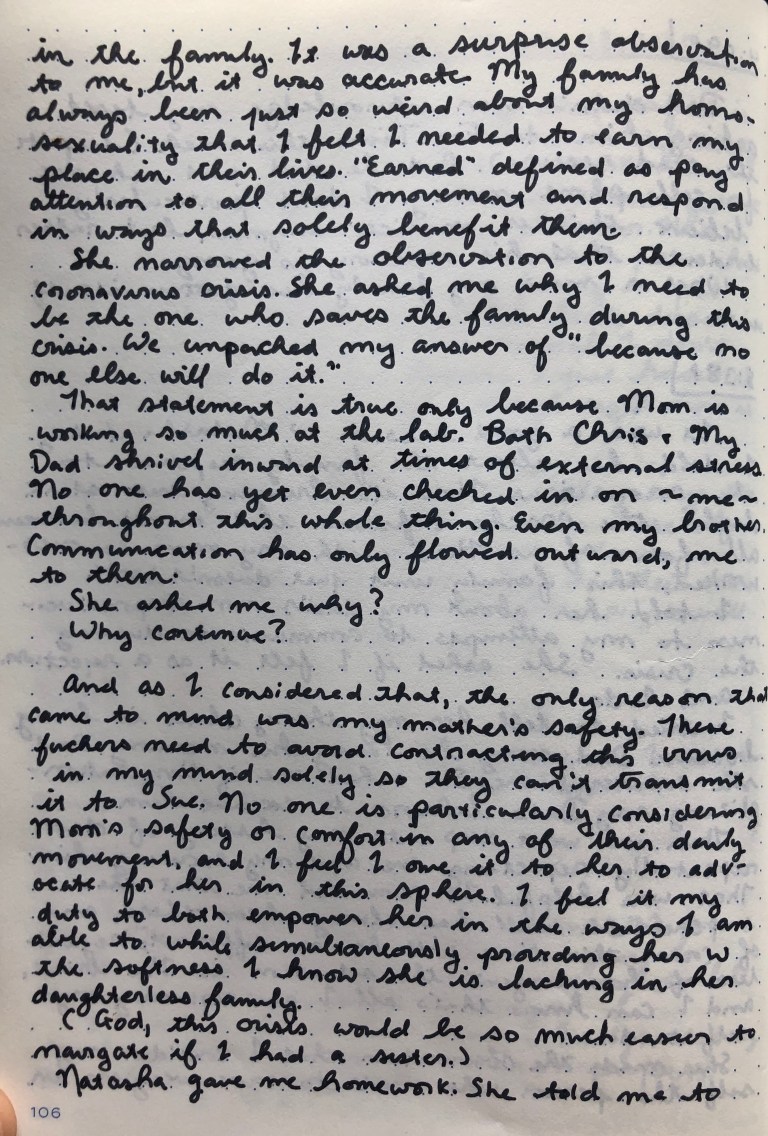 in the family. It was a surprise observation
to me, but it was accurate. My family has
always been just so weird about my homo-
sexuality that I felt I needed to earn my
place in their lives. "Earned" defined as pay
attention to all their movement and respond
in ways that solely benefit them.
She narrowed the observation to the
coronavirus crisis. She asked me why I need to
be the one who saves the family during this
crisis. We unpacked my answer of "because no
one else will do it."
That statement is true only because Mom is
working so much at the lab. Both Chris & My
Dad shrivel inward at times of external stress.
No one has yet even checked in on ~me~
throughout this whole thing. Even my brother.
Communication has only flowed outward, me
to them.
She asked me why?
Why continue?
And as I considered that, the only reason that
came to mind was my mother's safety. These
fuckers need to avoid contracting this virus
in my mind solely so they can't transmit
it to Sue. No one is particularly considering
Mom's safety or comfort in any of their daily
movement, and I feel I owe it to her to adv-
ocate for her in this sphere. I feel it my
duty to both empower her in the ways I am
able to while simultaneously providing her w
the softness I know she is lacking in her
daughterless family.
(God, this crisis would be so much easier to
navigate if I had a sister.)
Natasha gave me homework. She told me to
106